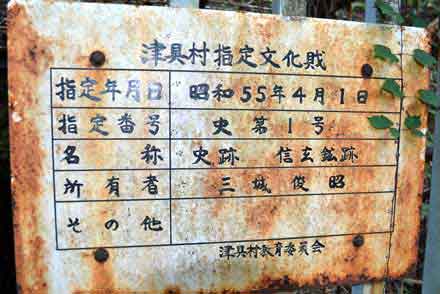 津具村指定文化財
指定年月日 昭和55年4月1日
指定番号 史第1号
名称 史跡 信玄鉱跡
所有者 三城俊昭
その他
津具村教育委員会